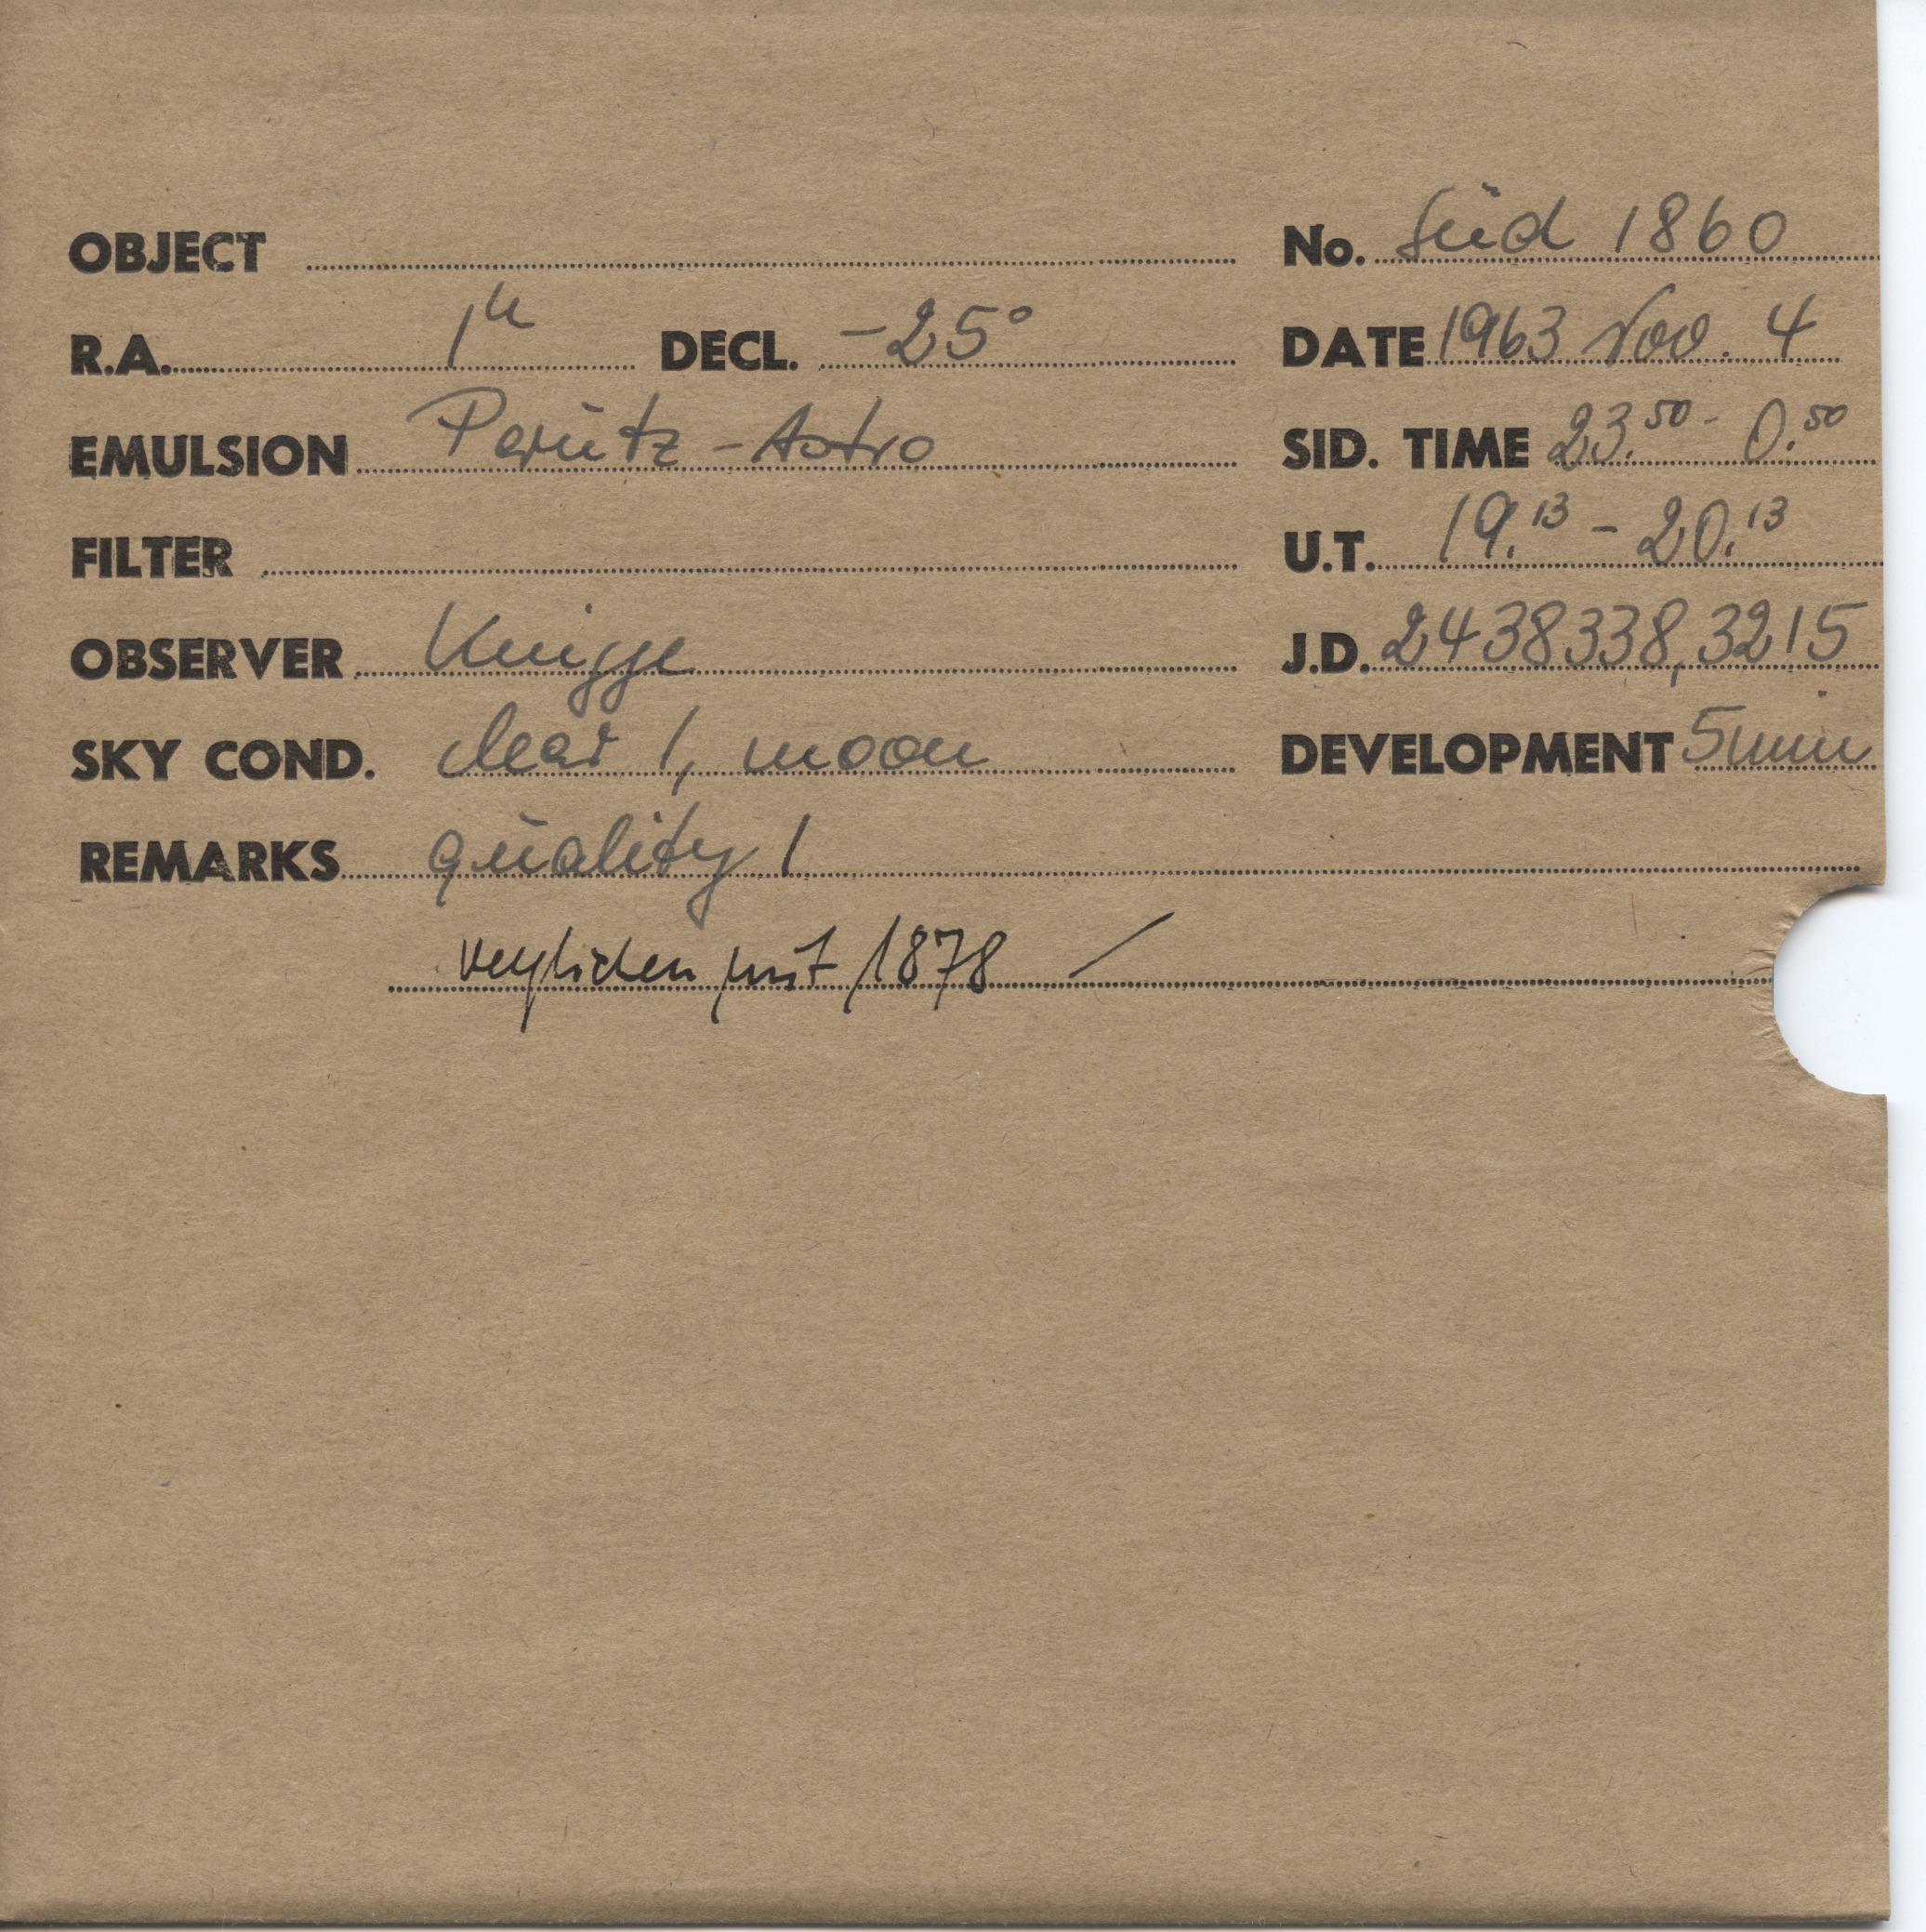 OBJECT No. Süd 1860
R.A. 1h DECL. -25° DATE 1963 Nov. 4
EMULSION Perutz - Astro SID. TIME 23.50 - 0.50
FILTER U.T. 19.13 - 20.13
OBSERVER Knigge J.D. 2438338,3215
SKY COND. clear 1, moon DEVELOPMENT 5 min
REMARKS quality 1
verglichen mit 1878 /